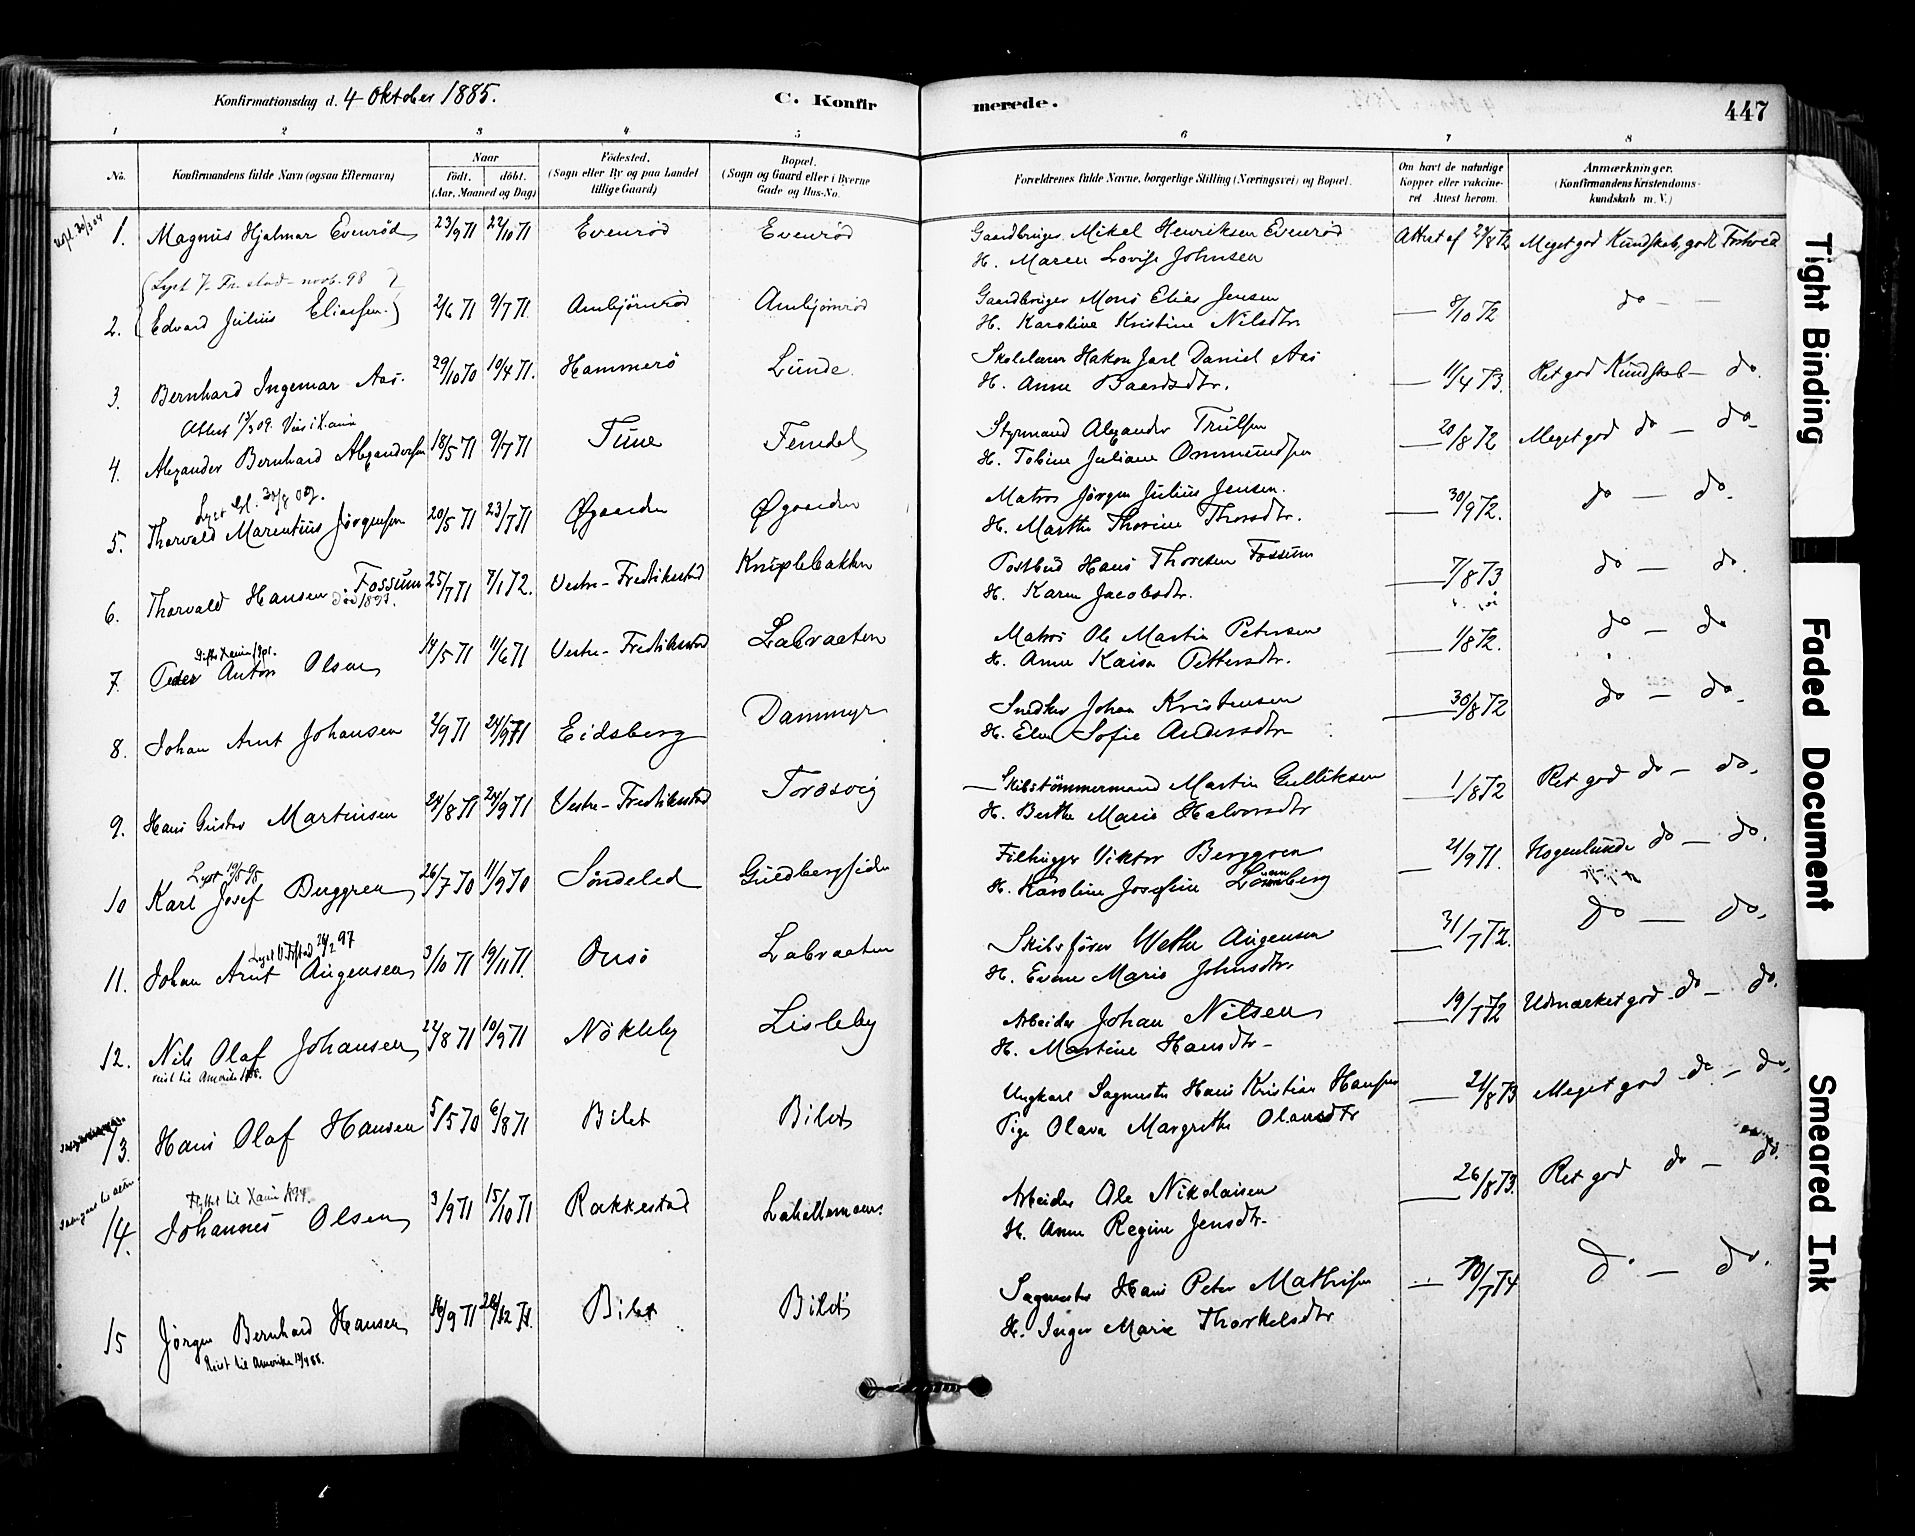 Konfirmationsdag d. 4 Oktober 1885.
C. Konfir
merede.
447
1 2 3 4 5 6 7 8
No.
Konfirmandens fulde Navn (ogsaa Efternavn)
Naar
födt. döbt.
(Aar, Maaned og Dag)
Födested.
(Sogn eller By og paa Landet
tillige Gaard)
Bopæl.
(Sogn og Gaard eller i Byerne
Gade og Hus-No.
Forældrenes fulde Navne, borgerlige Stilling (Næringsvei) og Bopæl.
Om havt de naturlige
Kopper eller vakcine-
ret Attest herom.
Anmærkninger.
(Konfirmandens Kristendoms-
kundskab m. V.)
1. Magnus Hjalmar Evenröd 23/9 71 22/10 71 Evenröd Evenröd Gaardbruger Mikal Henriksen Evenröd Attest af 29/8 72 Meget god Kundskab, godt Forhold
H. Maren Lovise Johnsen
2. Edvard Julius Eliassen. 2/6 71 9/7 71 Ambjörnröd Ambjörnröd Gaardbruger Mons Elias Jensen — 8/10 72 do — —
H. Karoline Kristine Nilsdtr
3. Bernhard Ingemar Aas. 29/10 70 10/4 71. Hammerö Lunde Skolelærer Hakon Jarl Daniel Aas — 11/4 73. Ret god Kundskab — do.
H. Anne Baardsdtr.
4. Alexander Bernhard Alexandersen 18/5 71 9/7 71 Tune Femdal Styrmand Alexander Trulsen — 20/8 72 Meget god do — do
H. Tobine Juliane Ommundsen
5. Thorvald Marentius Jörgensen 20/5 71 23/7 71 Øgaarden Øgaarden Matros Jörgen Julius Jensen. — 30/9 72. do — do.
H. Marthe Thorine Thorsdtr.
6. Thorvald Hansen Fossum 25/7 71 7/1 72. Vestre-Fredrikstad Kniplebakken Postbud Hans Thoresen Fossum — 7/8 73 do — do.
Död 1897.
H. Karen Jacobsdtr.
7. Peder Anton Olsen 14/5 71 11/6 71 Vestre-Fredrikstad Labraaten Matros Ole Martin Petersen — 1/8 72. do — do
H. Anne Kaisa Pettersdtr.
8. Johan Arnt Johansen 2/9 71 24/9 71 Eidsberg Dammyr Snedker Johan Kristensen — 30/8 72 do — do.
H. Elen Sofie Andersdtr
9. Hans Gustav Martinsen 24/8 71 24/9 71 Vestre-Fredrikstad Torosvig Skibstömmermand Martin Gulliksen — 1/8 72 Ret god do — do.
H. Berthe Marie Halvorsdtr
10 Karl Josef Berggren 26/7 70 11/9 70 Söndeled Guldbergsiden Filhugger Viktor Berggren — 21/9 71. Nogenlunde do — do.
H. Karoline Josefine Lönnberg
11. Johan Arnt Augensen 3/10 71 19/11 71. Onsö Labraaten Skibsförer Wethe Augensen — 31/7 72. do — do.
H. Evine Marie Johnsdtr.
12. Nils Olaf Johansen 22/8 71 10/9 71 Nökleby Lisleby Arbeider Johan Nilsen — 19/7 72 Udmærket god do — do.
reist til Amerika 1888.
H. Martine Hansdtr
13. Hans Olaf Hansen 5/5 70 6/8 71 Bilet Bilet Ungkarl Sagmester Hans Kristian Hansen — 21/8 73 Meget god do — do.
Pige Olava Margrethe Olausdtr
14. Johannes Olsen 3/9 71 15/10 71 Rakkestad Arbeider Ole Nikolaisen — 26/8 73. Ret god do — do.
H. Anne Regine Jensdtr.
15 Jörgen Bernhard Hansen 16/9 71 26/12 71. Bilet Bilet Sagmester Hans Peter Mathisen — 10/7 74 do — do.
Reist til Amerika 13/4 88.
H. Inger Marie Thorkelsdtr
Tight Binding
Faded Document
Smeared Ink